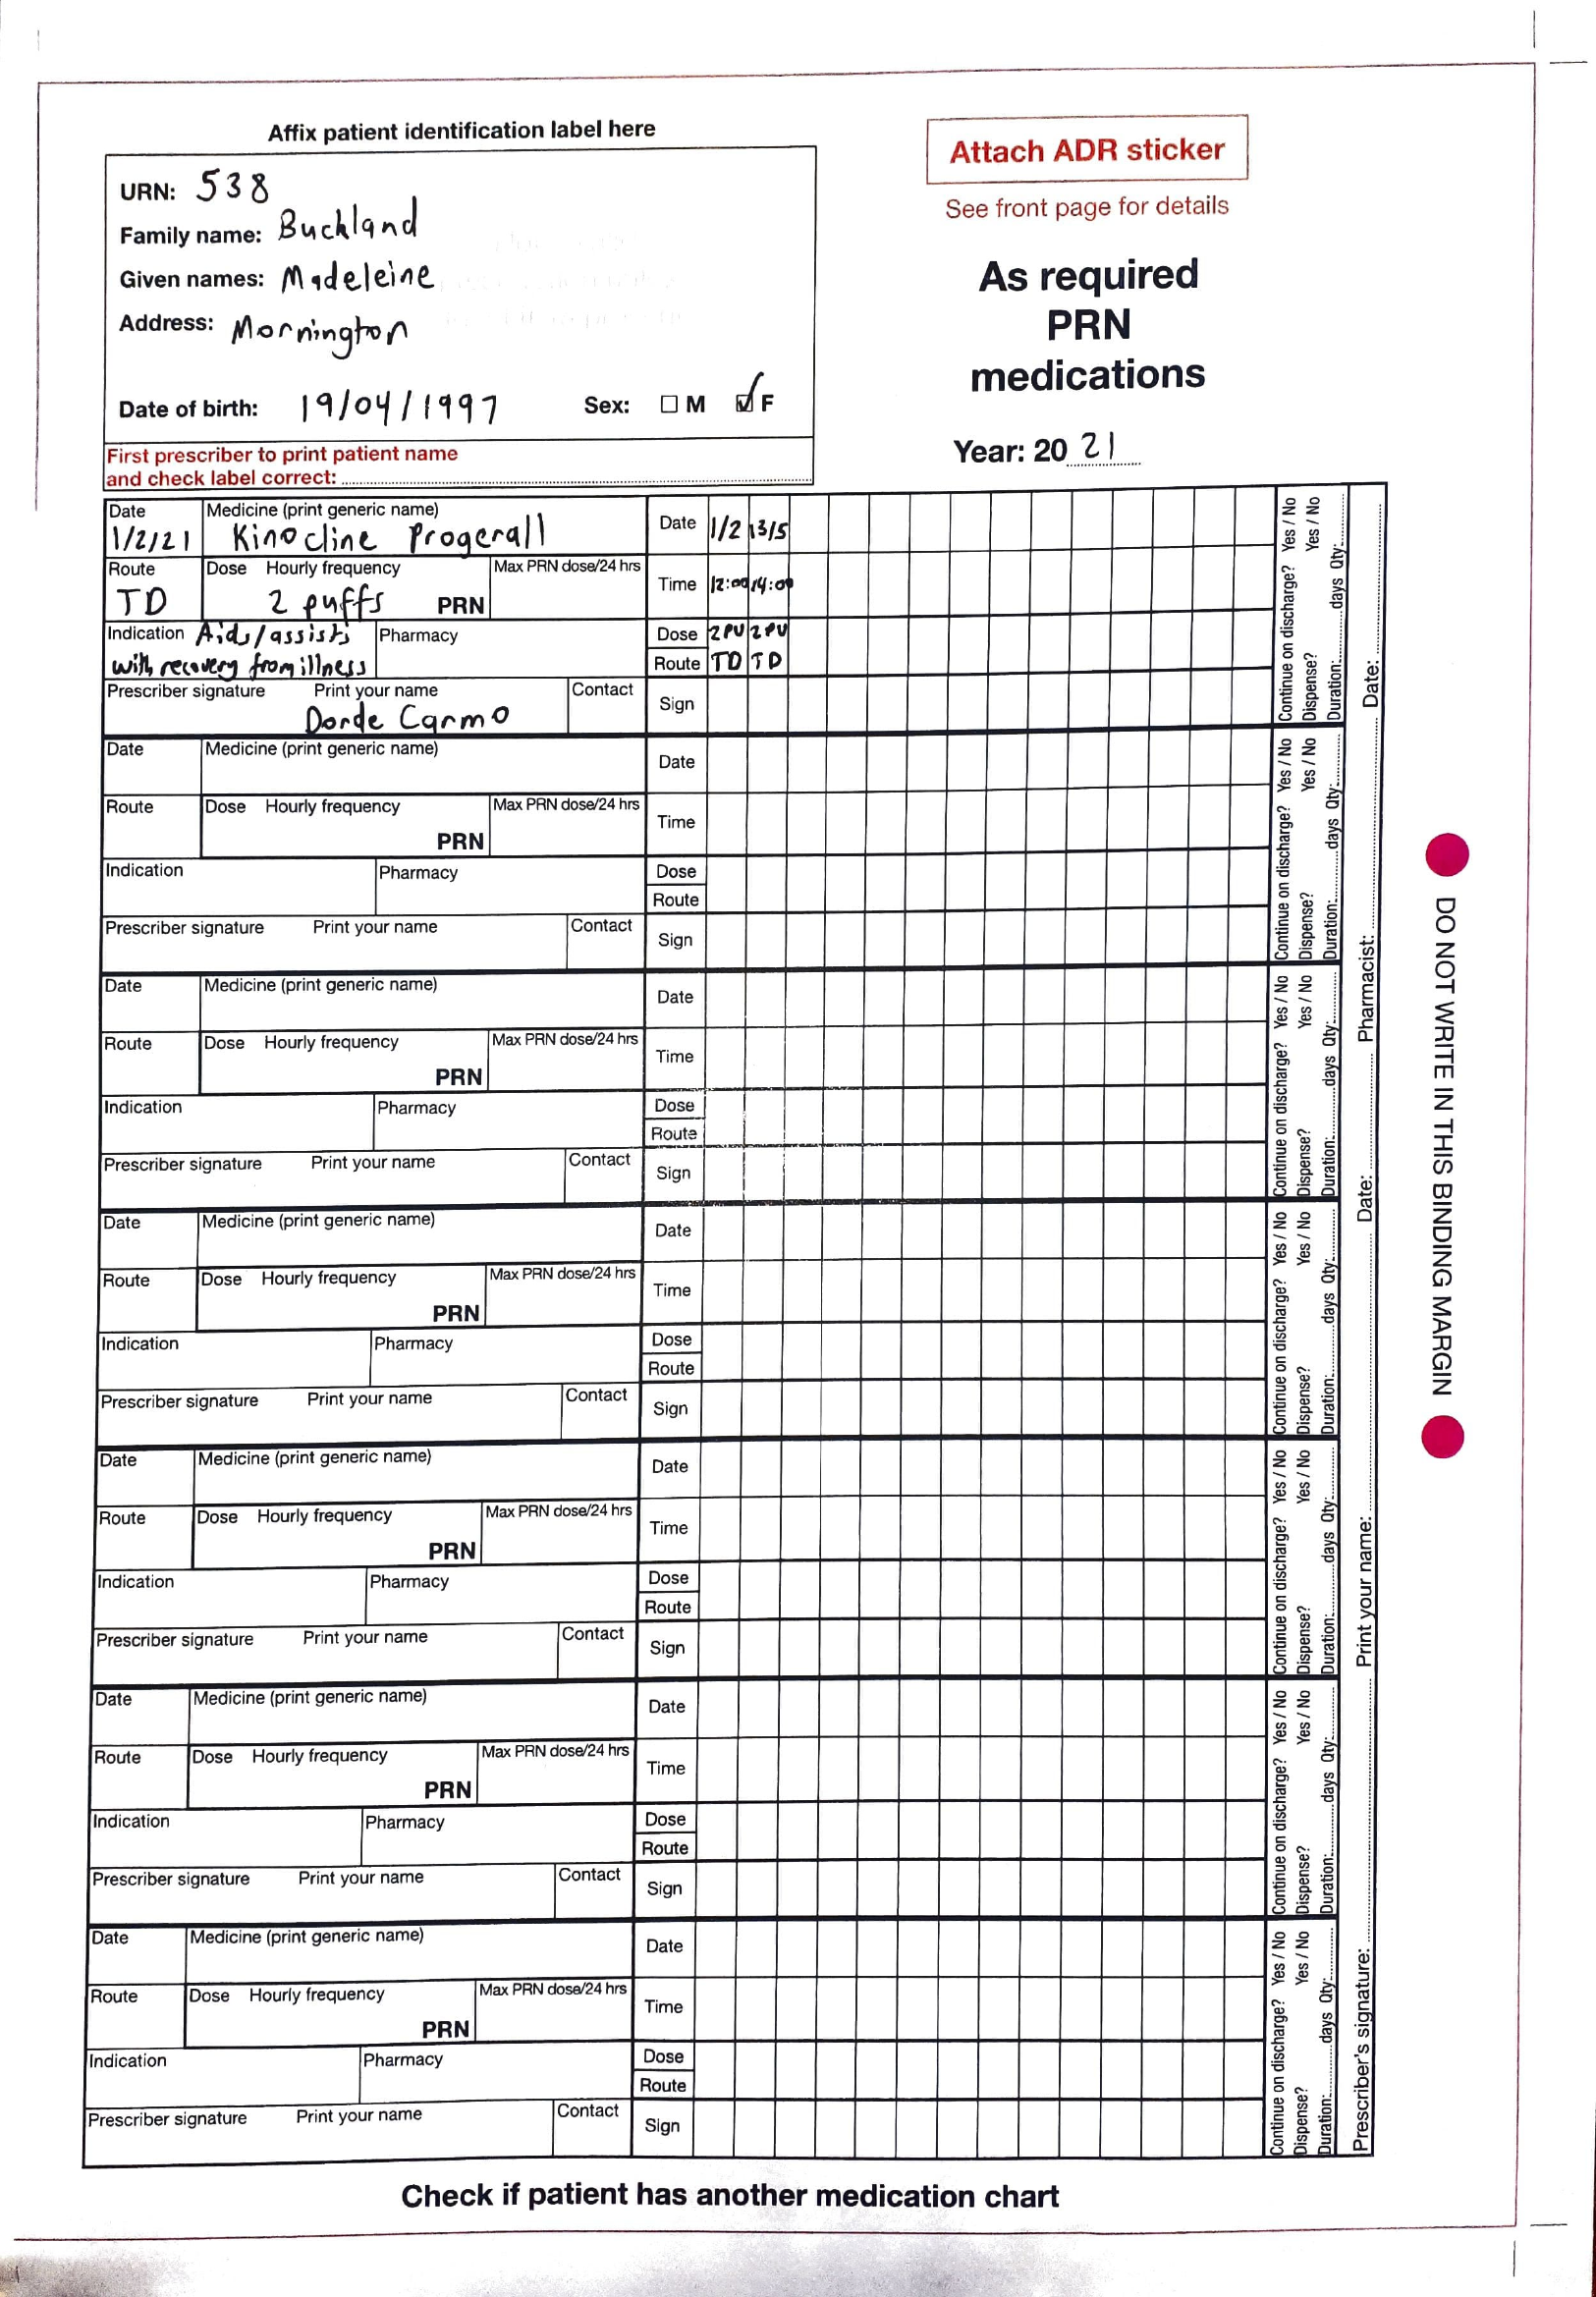 Affix patient identification label here
URN: 538
Family name: Buckland
Given names: Madeleine
Address: Mornington
Date of birth: 19/04/1997 Sex: M F
First prescriber to print patient name
and check label correct:
Attach ADR sticker
See front page for details
As required
PRN
medications
Year: 20 21
Date Medicine (print generic name) Date 1/2 13/5
1/2/21 Kinocline Progerall
Route Dose Hourly frequency Max PRN dose/24 hrs Time 12:00 14:00
TD 2 puffs PRN
Indication Aids/assists Pharmacy Dose 2PU 2PU
with recovery from illness Route TD TD
Prescriber signature Print your name Contact Sign
Dorde Carmo
Continue on discharge? Yes / No
Dispense? Yes / No
Duration: days Qty:
Date Medicine (print generic name) Date
Route Dose Hourly frequency Max PRN dose/24 hrs Time
PRN
Indication Pharmacy Dose
Route
Prescriber signature Print your name Contact Sign
Continue on discharge? Yes / No
Dispense? Yes / No
Duration: days Qty:
Date Medicine (print generic name) Date
Route Dose Hourly frequency Max PRN dose/24 hrs Time
PRN
Indication Pharmacy Dose
Route
Prescriber signature Print your name Contact Sign
Continue on discharge? Yes / No
Dispense? Yes / No
Duration: days Qty:
Date Medicine (print generic name) Date
Route Dose Hourly frequency Max PRN dose/24 hrs Time
PRN
Indication Pharmacy Dose
Route
Prescriber signature Print your name Contact Sign
Continue on discharge? Yes / No
Dispense? Yes / No
Duration: days Qty:
Date Medicine (print generic name) Date
Route Dose Hourly frequency Max PRN dose/24 hrs Time
PRN
Indication Pharmacy Dose
Route
Prescriber signature Print your name Contact Sign
Continue on discharge? Yes / No
Dispense? Yes / No
Duration: days Qty:
Date Medicine (print generic name) Date
Route Dose Hourly frequency Max PRN dose/24 hrs Time
PRN
Indication Pharmacy Dose
Route
Prescriber signature Print your name Contact Sign
Continue on discharge? Yes / No
Dispense? Yes / No
Duration: days Qty:
Date Medicine (print generic name) Date
Route Dose Hourly frequency Max PRN dose/24 hrs Time
PRN
Indication Pharmacy Dose
Route
Prescriber signature Print your name Contact Sign
Continue on discharge? Yes / No
Dispense? Yes / No
Duration: days Qty:
Prescriber's signature: Print your name: Date: Pharmacist: Date:
DO NOT WRITE IN THIS BINDING MARGIN
Check if patient has another medication chart